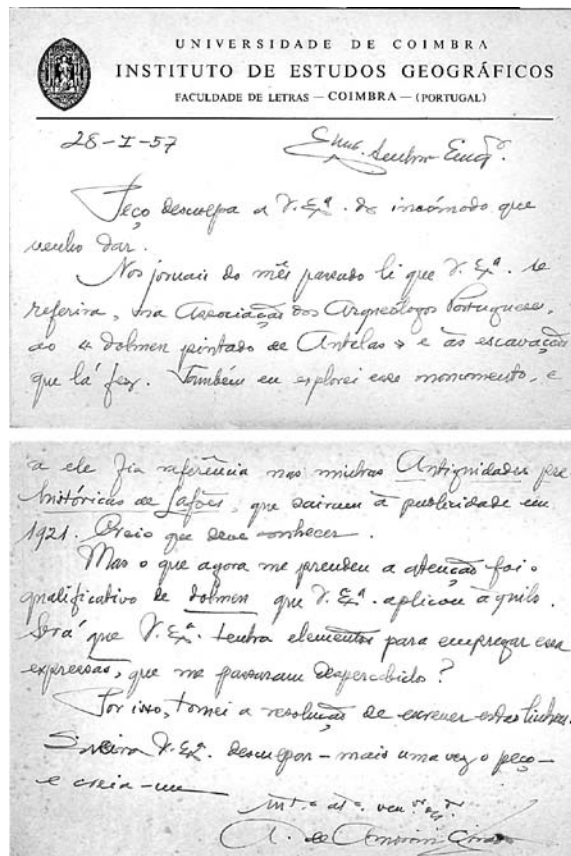 UNIVERSIDADE DE COIMBRA
INSTITUTO DE ESTUDOS GEOGRÁFICOS
FACULDADE DE LETRAS — COIMBRA — (PORTUGAL)
28-I-57
Senhor Engº.
Peço desculpa a V. Exª. do incómodo que
venho dar.
Nos jornais do mês passado li que V. Exª. se
referira, na Associação dos Arqueólogos Portugueses,
ao « dolmen pintado de Antelas » e às escavações
que lá fez. Também eu explorei esse monumento, e
a ele fiz referência nas minhas Antiguidades pre
históricas de Lafões, que sairam à publicidade em
1921. Creio que deve conhecer.
Mas o que agora me prendeu a atenção foi o
qualificativo de dolmen que V. Exª. aplicou àquilo.
Será que V. Exª. tenha elementos para empregar essa
expressão, que me passaram despercebido?
Por isso, tomei a resolução de escrever estas linhas.
V. Exª. desculpar – mais uma vez o peço –
e creia-me
A. de Amorim Girão